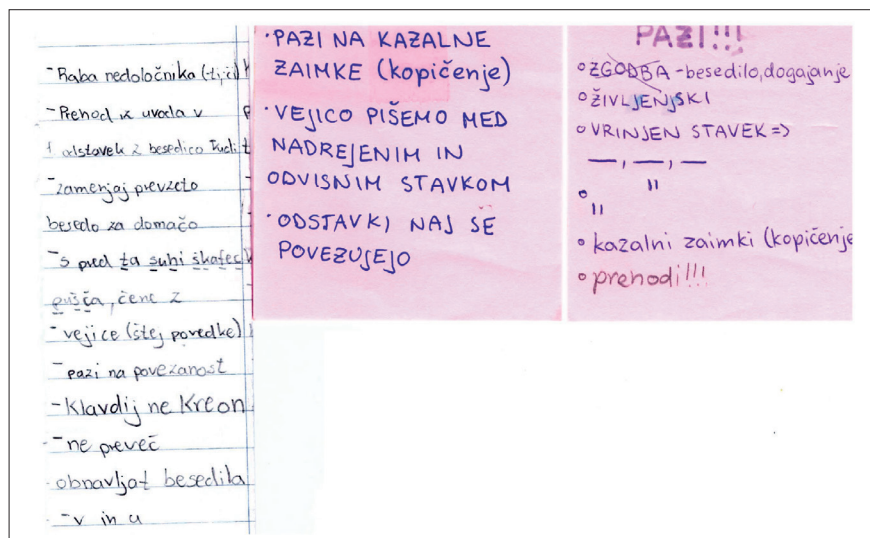 - Raba nedoločnika (-ti,-či)
- Prehod iz uvoda v
1 odstavek z besedico tudi
- zamenjaj prevzeto
besedo za domačo
- s pred ta suhi škafec
pušča, čene z
- vejice (štej povedke)
- pazi na povezanost
- Klavdij ne Kreon
- ne preveč
obnavljat besedila
- v in u
· PAZI NA KAZALNE
ZAIMKE (kopičenje)
· VEJICO PIŠEMO MED
NADREJENIM IN
ODVISNIM STAVKOM
· ODSTAVKI NAJ SE
POVEZUJEJO
PAZI!!!
° ZGODBA - besedilo, dogajanje
° ŽIVLJENJSKI
° VRINJEN STAVEK =>
—, —, —
° „ "
° kazalni zaimki (kopičenje
° prehodi!!!